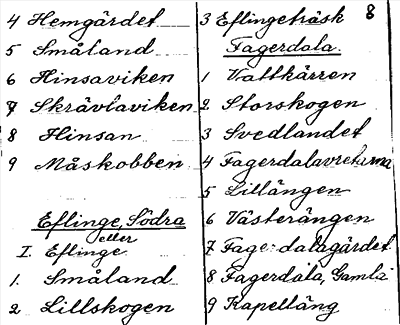 4 Hemgärdet
5 Småland
6 Hinsaviken
7 Skrävlaviken
8 Hinsan
9 Måskobben
Eflinge, Södra
eller
I. Eflinge
1. Småland
2 Lillskogen
8
3 Eflingeträsk
Fagerdala.
1 Vattkärren
2 Storskogen
3 Svedlandet
4 Fagerdalavreturna
5 Lillängen
6 Västerängen
7 Fage:dalagärdet
8 Fagerdala, Gamla
9 Kapelläng